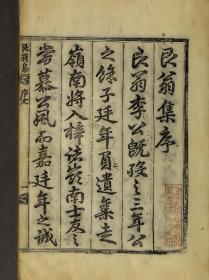 艮翁集序
艮翁李公既歿之三年公
之係子廷年負遺集走
嶺南將入梓諸嶺南士友之
嘗慕公風而嘉廷年之誠